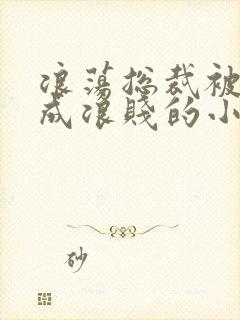 浪蕩総裁被
成浪賤的小
砂